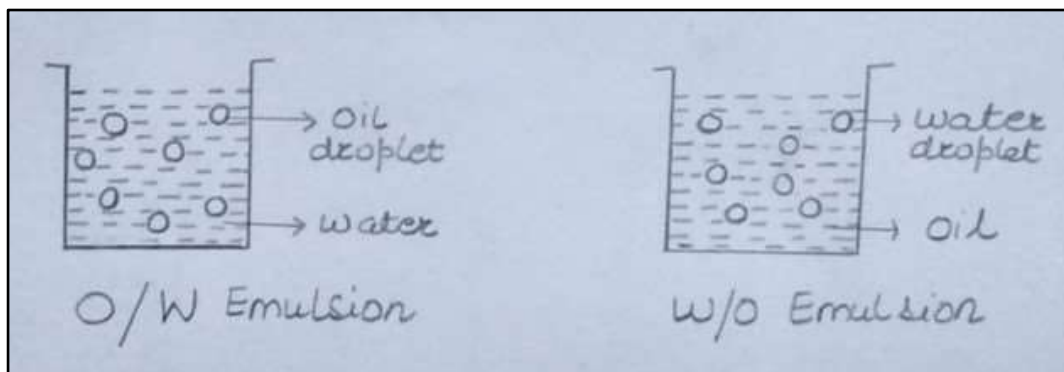 Oil
droplet
water
O/W Emulsion
water
droplet
Oil
W/O Emulsion